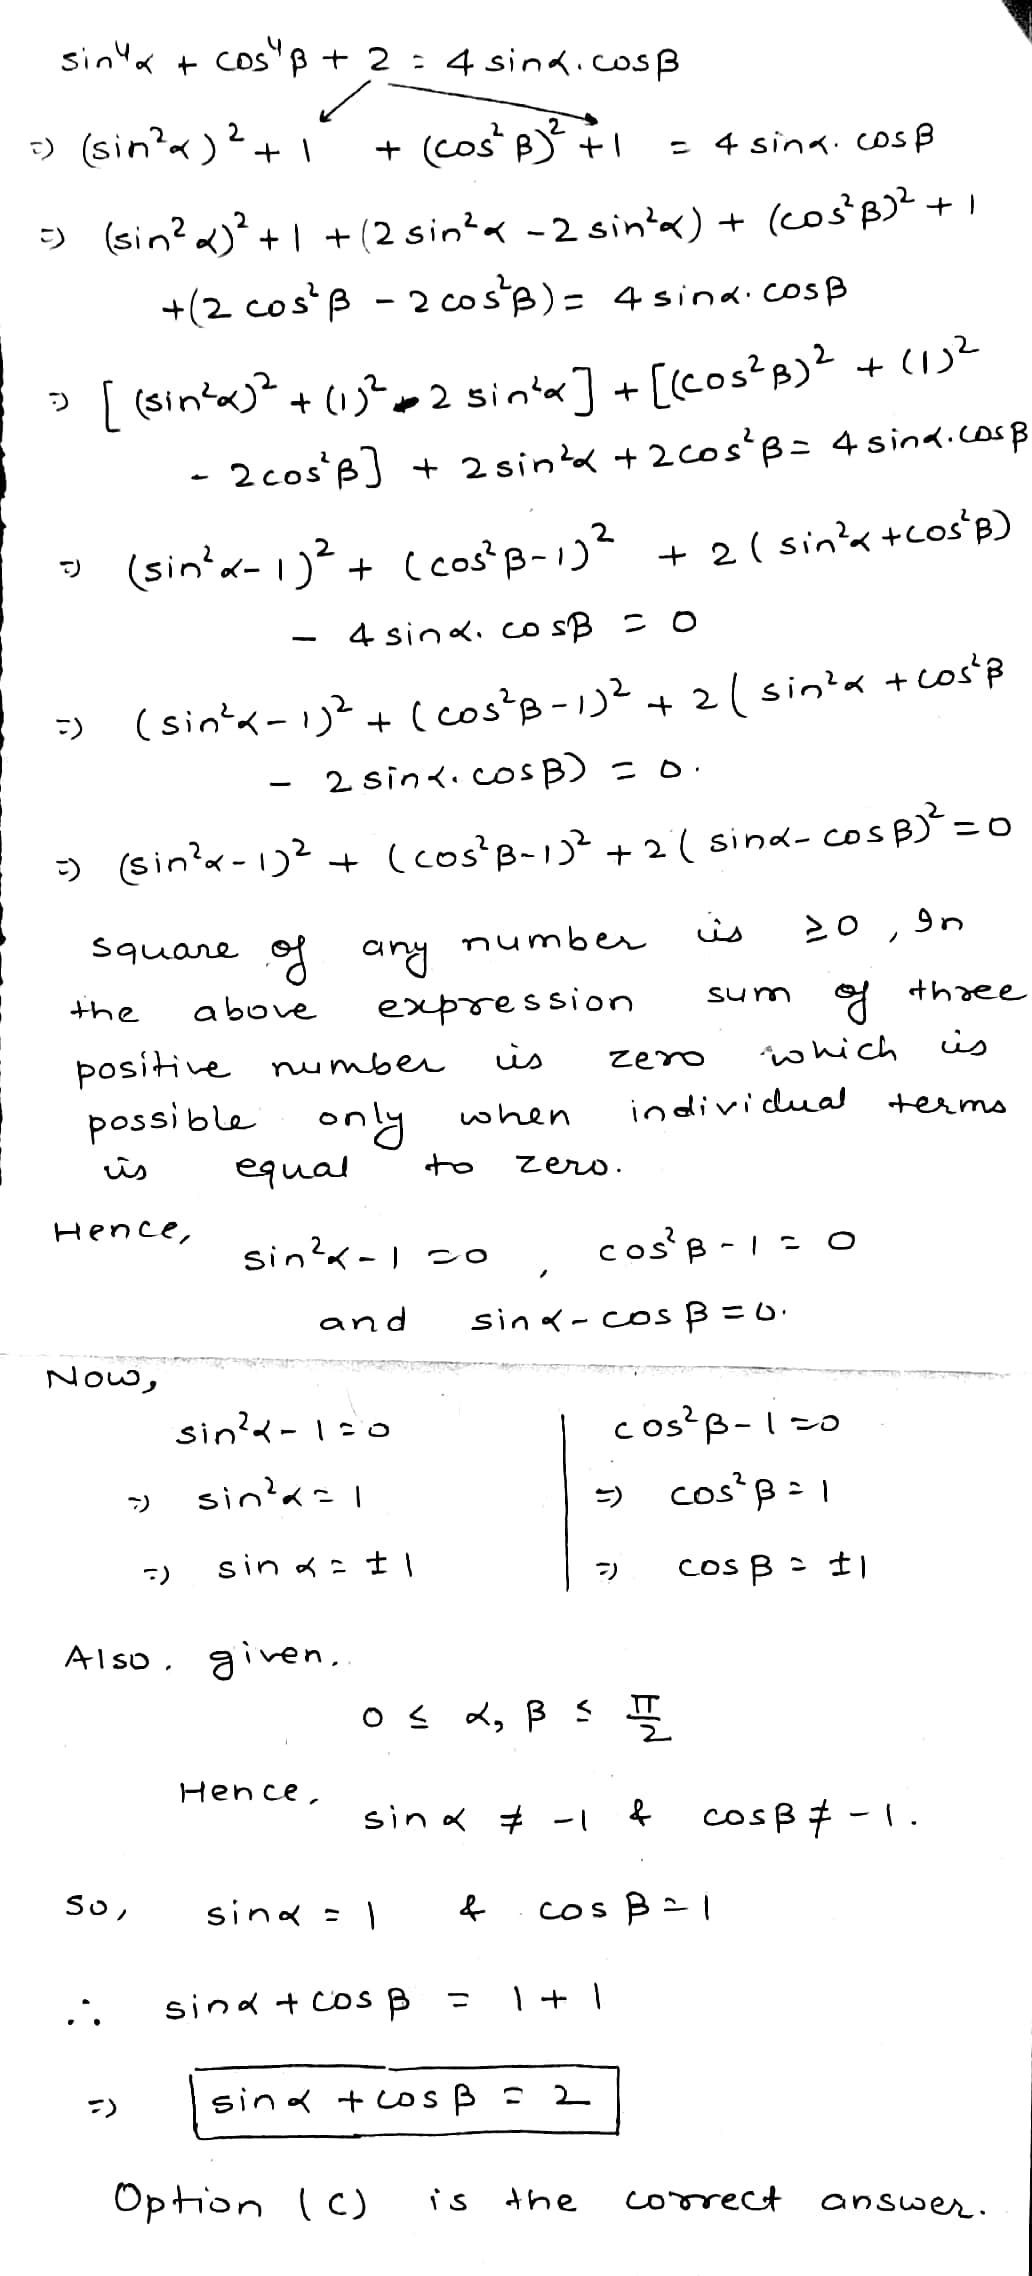 sin⁴α + cos⁴β + 2 = 4 sinα.cosβ
=> (sin²α)² + 1 + (cos²β)² + 1 = 4 sinα. cosβ
=> (sin²α)² + 1 + (2 sin²α - 2 sin²α) + (cos²β)² + 1
+(2 cos²β - 2 cos²β) = 4 sinα. cosβ
=> [ (sin²α)² + (1)² - 2 sin²α] + [(cos²β)² + (1)²
- 2cos²β] + 2sin²α + 2cos²β = 4 sinα.cosβ
=> (sin²α-1)² + (cos²β-1)² + 2 ( sin²α + cos²β)
- 4 sinα. cosβ = 0
=> (sin²α-1)² + (cos²β-1)² + 2 ( sin²α + cos²β
- 2 sinα. cosβ) = 0.
=> (sin²α-1)² + (cos²β-1)² + 2 ( sinα- cosβ)² = 0
square of any number is ≥0, In
the above expression sum of three
positive number is zero which is
possible only when individual terms
is equal to zero.
Hence,
sin²α-1 = 0 , cos²β - 1 = 0
and sinα- cosβ = 0.
Now,
sin²α-1 = 0 | cos²β-1 = 0
=> sin²α = 1 | => cos²β = 1
=> sinα = ±1 | => cosβ = ±1
Also. given.
0 ≤ α, β ≤ π/2
Hence,
sinα ≠ -1 & cosβ ≠ -1.
so, sinα = 1 & cosβ = 1
∴ sinα + cosβ = 1 + 1
=> sinα + cosβ = 2
Option (C) is the correct answer.